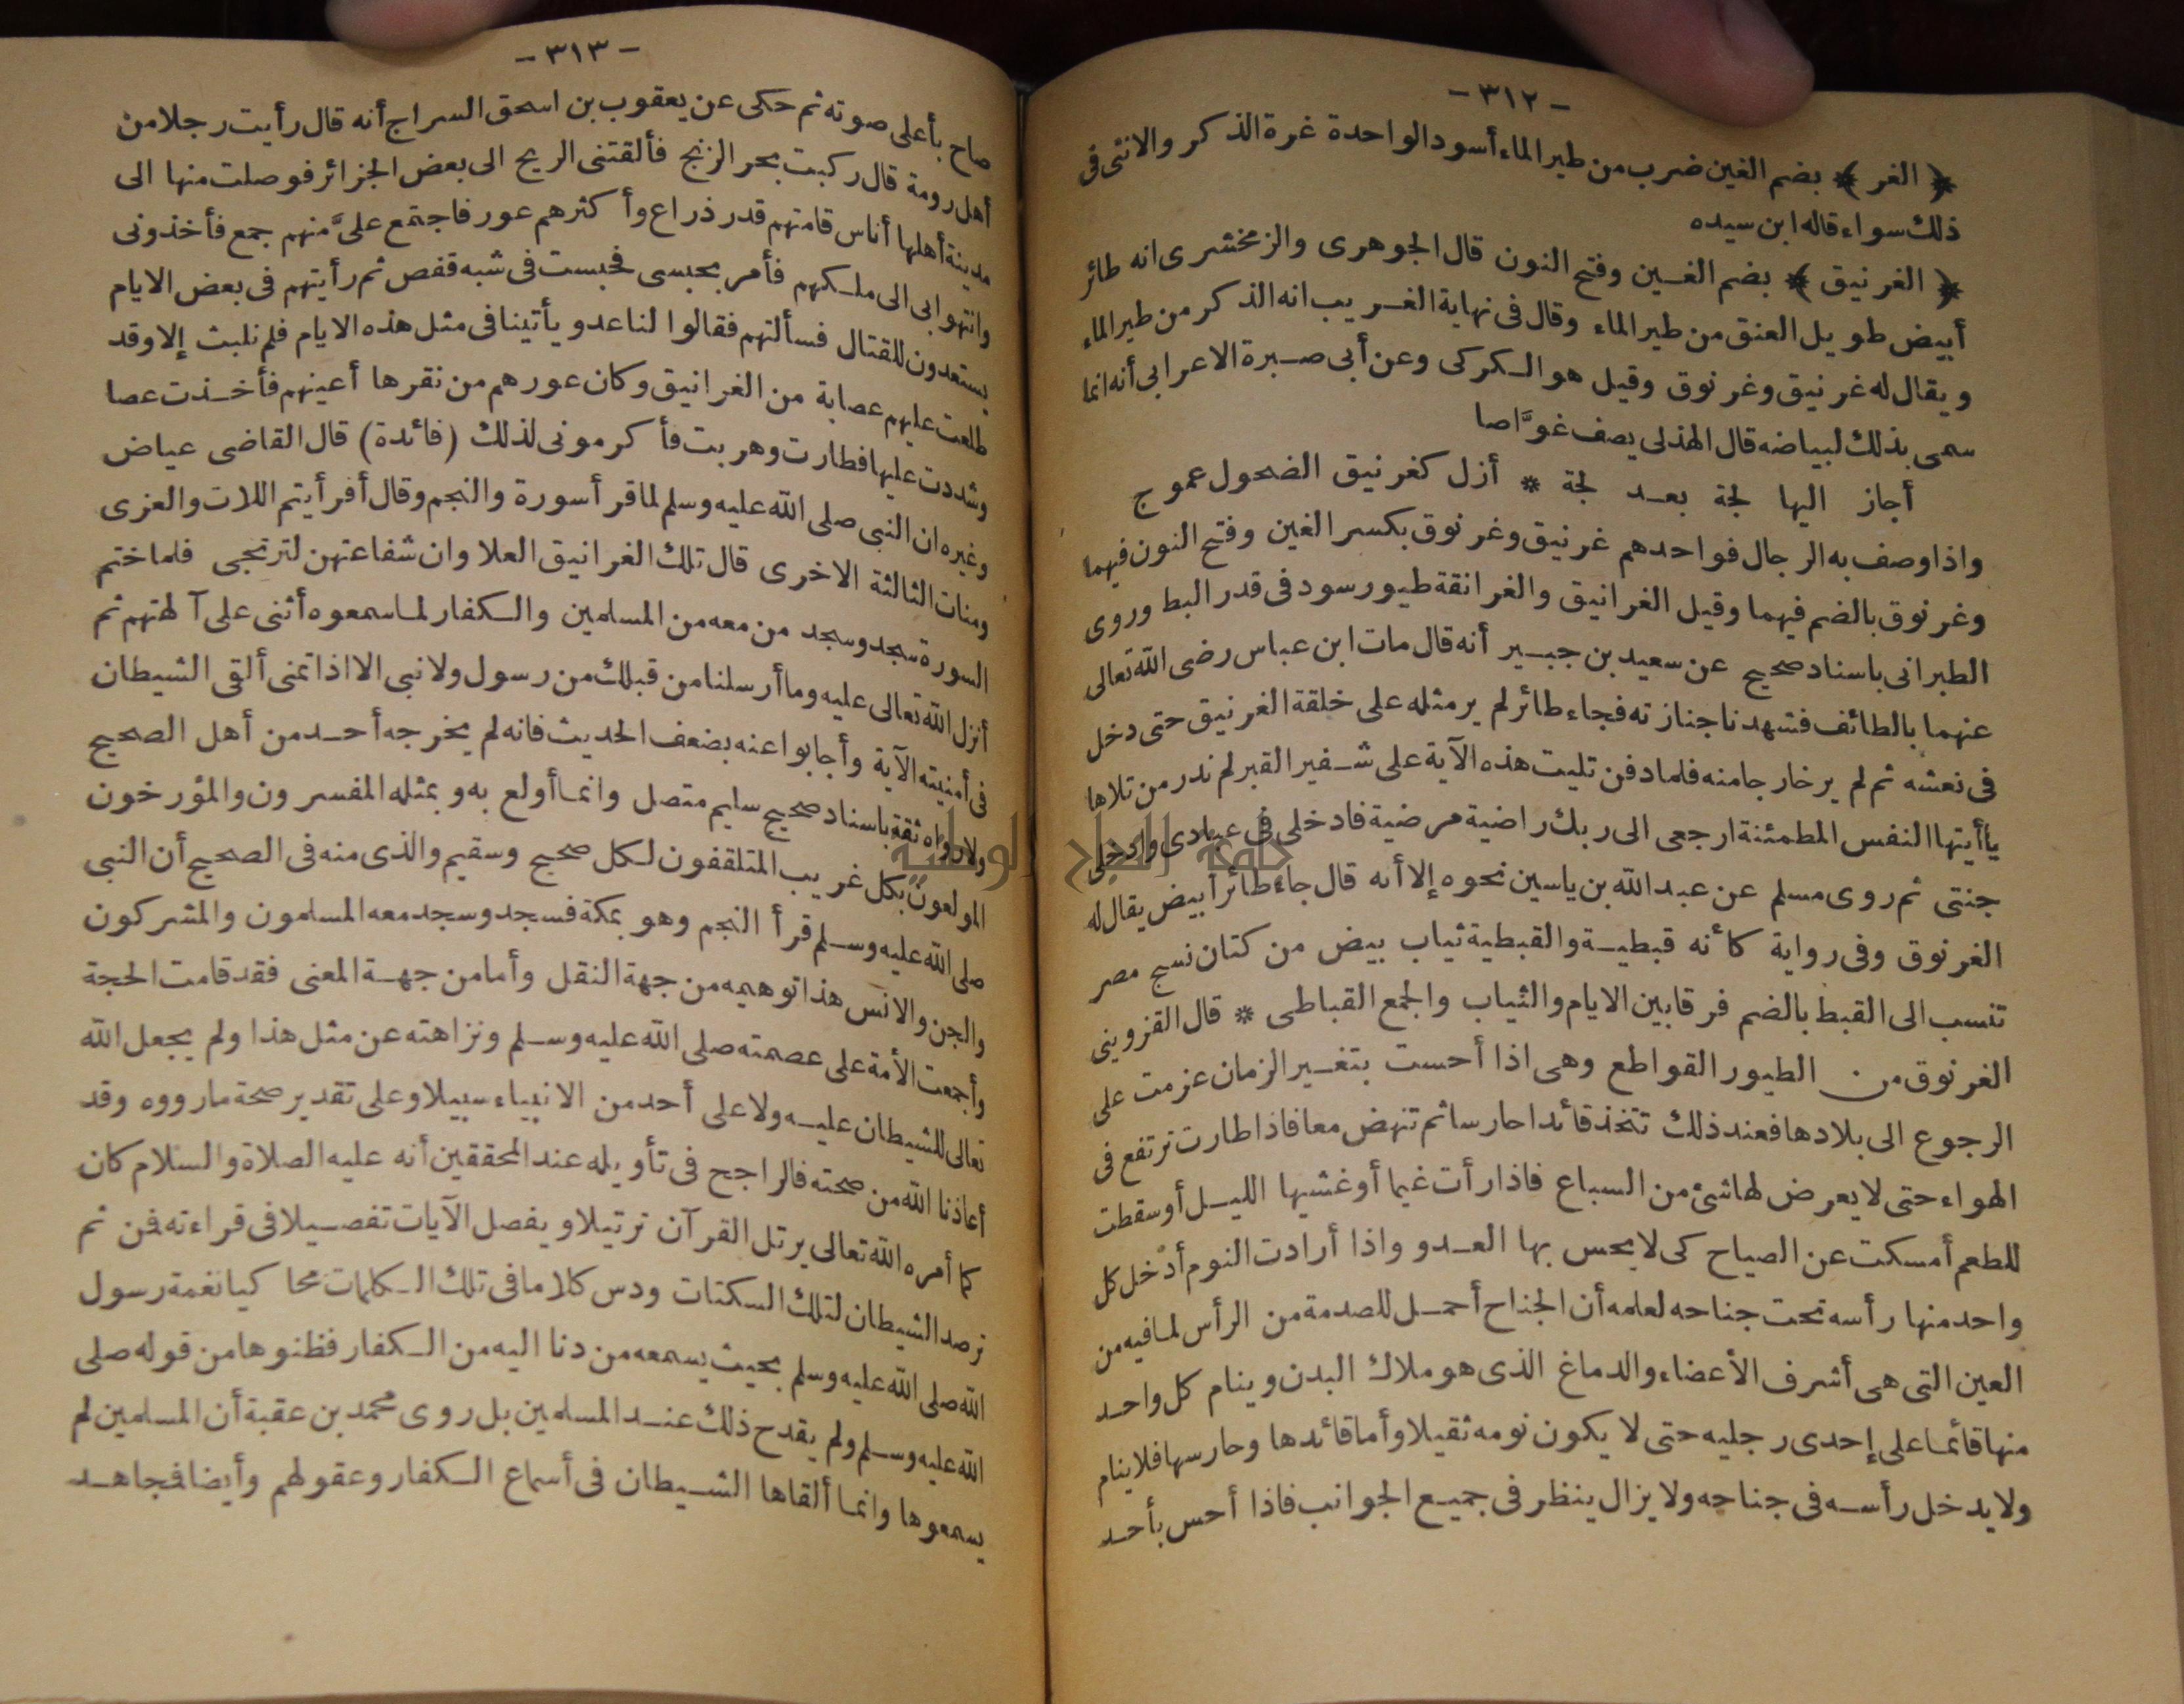 - ٣١٢ -
﴿ الغر ﴾ بضم الغين ضرب من طير الماء أسود الواحدة غرة الذكر والانثى فى
ذلك سواء قاله ابن سيده
﴿ الغرنيق ﴾ بضم الغين وفتح النون قال الجوهرى والزمخشرى انه طائر
أبيض طويل العنق من طير الماء وقال فى نهاية الغريب انه الذكر من طير الماء
ويقال له غرنيق وغرنوق وقيل هو الكركى وعن أبى صبرة الاعرابى أنه انما
سمى بذلك لبياضه قال الهذلى يصف غوَّاصا
أجاز اليها لجة بعد لجة * أزل كغرنيق الضحول عموج
واذا وصف به الرجال فواحدهم غرنيق وغرنوق بكسر الغين وفتح النون فيهما
وغرنوق بالضم فيهما وقيل الغرانيق والغرانقة طيور سود فى قدر البط وروى
الطبرانى باسناد صحيح عن سعيد بن جبير أنه قال مات ابن عباس رضى الله تعالى
عنهما بالطائف فشهدنا جنازته فجاء طائر لم ير مثله على خلقة الغرنيق حتى دخل
فى نعشه ثم لم ير خارجا منه فلما دفن تليت هذه الآية على شفير القبر لم ندر من تلاها
يأأيتها النفس المطمئنة ارجعى الى ربك راضية مرضية فادخلى فى عبادى وادخلى
جنتى ثم روى مسلم عن عبد الله بن ياسين نحوه إلا أنه قال جاء طائر أبيض يقال له
الغرنوق وفى رواية كأنه قبطية والقبطية ثياب بيض من كتان نسج مصر
تنسب الى القبط بالضم فرقا بين الايام والثياب والجمع القباطى * قال القزوينى
الغرنوق من الطيور القواطع وهى اذا أحست بتغير الزمان عزمت على
الرجوع الى بلادها فعند ذلك تتخذ قائدا حارسا ثم تنهض معا فاذا طارت ترتفع فى
الهواء حتى لا يعرض لها شئ من السباع فاذا رأت غيما أو غشيها الليل أو سقطت
للطعم أمسكت عن الصياح كى لا يحس بها العدو واذا أرادت النوم أدخل كل
واحد منها رأسه تحت جناحه لعلمه أن الجناح أحمل للصدمة من الرأس لما فيه من
العين التى هى أشرف الأعضاء والدماغ الذى هو ملاك البدن وينام كل واحد
منها قائما على إحدى رجليه حتى لا يكون نومه ثقيلا وأما قائدها وحارسها فلا ينام
ولا يدخل رأسه فى جناحه ولا يزال ينظر فى جميع الجوانب فاذا أحس بأحد
- ٣١٣ -
صاح بأعلى صوته ثم حكى عن يعقوب بن اسحق السراج أنه قال رأيت رجلا من
أهل رومة قال ركبت بحر الزنج فألقتنى الريح الى بعض الجزائر فوصلت منها الى
مدينة أهلها أناس قامتهم قدر ذراع وأكثرهم عور فاجتمع علىَّ منهم جمع فأخذونى
وانتهوا بى الى ملكهم فأمر بحبسى فحبست فى شبه قفص ثم رأيتهم فى بعض الايام
يستعدون للقتال فسألتهم فقالوا لنا عدو يأتينا فى مثل هذه الايام فلم نلبث إلا وقد
طلعت عليهم عصابة من الغرانيق وكان عورهم من نقرها أعينهم فأخذت عصا
وشددت عليها فطارت وهربت فأكرمونى لذلك (فائدة) قال القاضى عياض
وغيره ان النبى صلى الله عليه وسلم لما قرأ سورة والنجم وقال أفرأيتم اللات والعزى
ومنات الثالثة الاخرى قال تلك الغرانيق العلا وان شفاعتهن لترتجى فلما ختم
السورة سجد وسجد من معه من المسلمين والكفار لما سمعوه أثنى على آلهتهم ثم
أنزل الله تعالى عليه وما أرسلنا من قبلك من رسول ولا نبى الا اذا تمنى ألقى الشيطان
فى أمنيته الآية وأجابوا عنه بضعف الحديث فانه لم يخرجه أحد من أهل الصحيح
ولا رواه ثقة باسناد صحيح سليم متصل وانما أولع به وبمثله المفسرون والمؤرخون
المولعون بكل غريب المتلقفون لكل صحيح وسقيم والذى منه فى الصحيح أن النبى
صلى الله عليه وسلم قرأ النجم وهو بمكة فسجد وسجد معه المسلمون والمشركون
والجن والانس هذا توهيمه من جهة النقل وأما من جهة المعنى فقد قامت الحجة
وأجمعت الأمة على عصمته صلى الله عليه وسلم ونزاهته عن مثل هذا ولم يجعل الله
تعالى للشيطان عليه ولا على أحد من الانبياء سبيلا وعلى تقدير صحة مارووه وقد
أعاذنا الله من صحته فالراجح فى تأويله عند المحققين أنه عليه الصلاة والسلام كان
كما أمره الله تعالى يرتل القرآن ترتيلا ويفصل الآيات تفصيلا فى قراءته فمن ثم
ترصد الشيطان لتلك السكتات ودس كلاما فى تلك الكلمات محاكيا نغمة رسول
الله صلى الله عليه وسلم بحيث يسمعه من دنا اليه من الكفار فظنوها من قوله صلى
الله عليه وسلم ولم يقدح ذلك عند المسلمين بل روى محمد بن عقبة أن المسلمين لم
يسمعوها وانما ألقاها الشيطان فى أسماع الكفار وعقولهم وأيضا فمجاهد
جامعة النجاح الوطنية